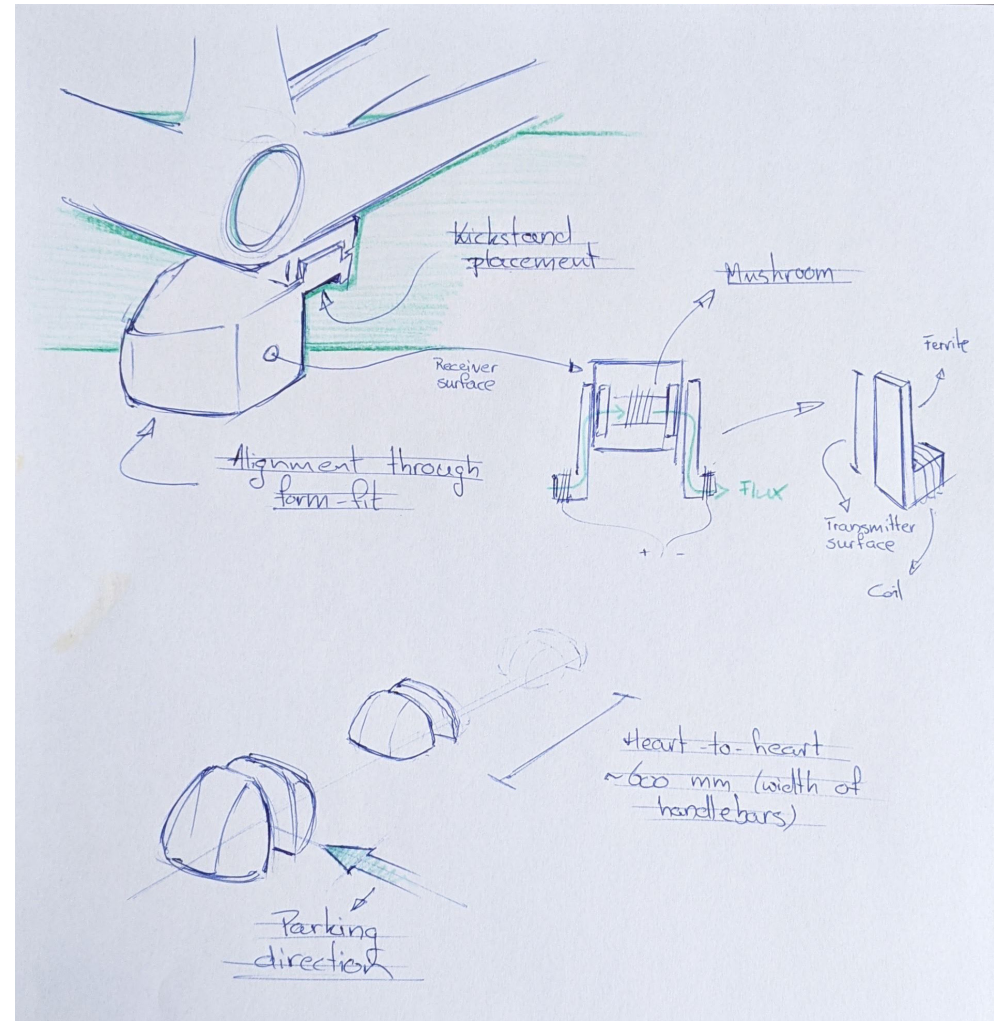 Kickstand
placement
Mushroom
Ferrite
Receiver
surface
Alignment through
form-fit
Flux
Transmitter
surface
+ -
Coil
Heart-to-heart
~600 mm (width of
handlebars)
Parking
direction